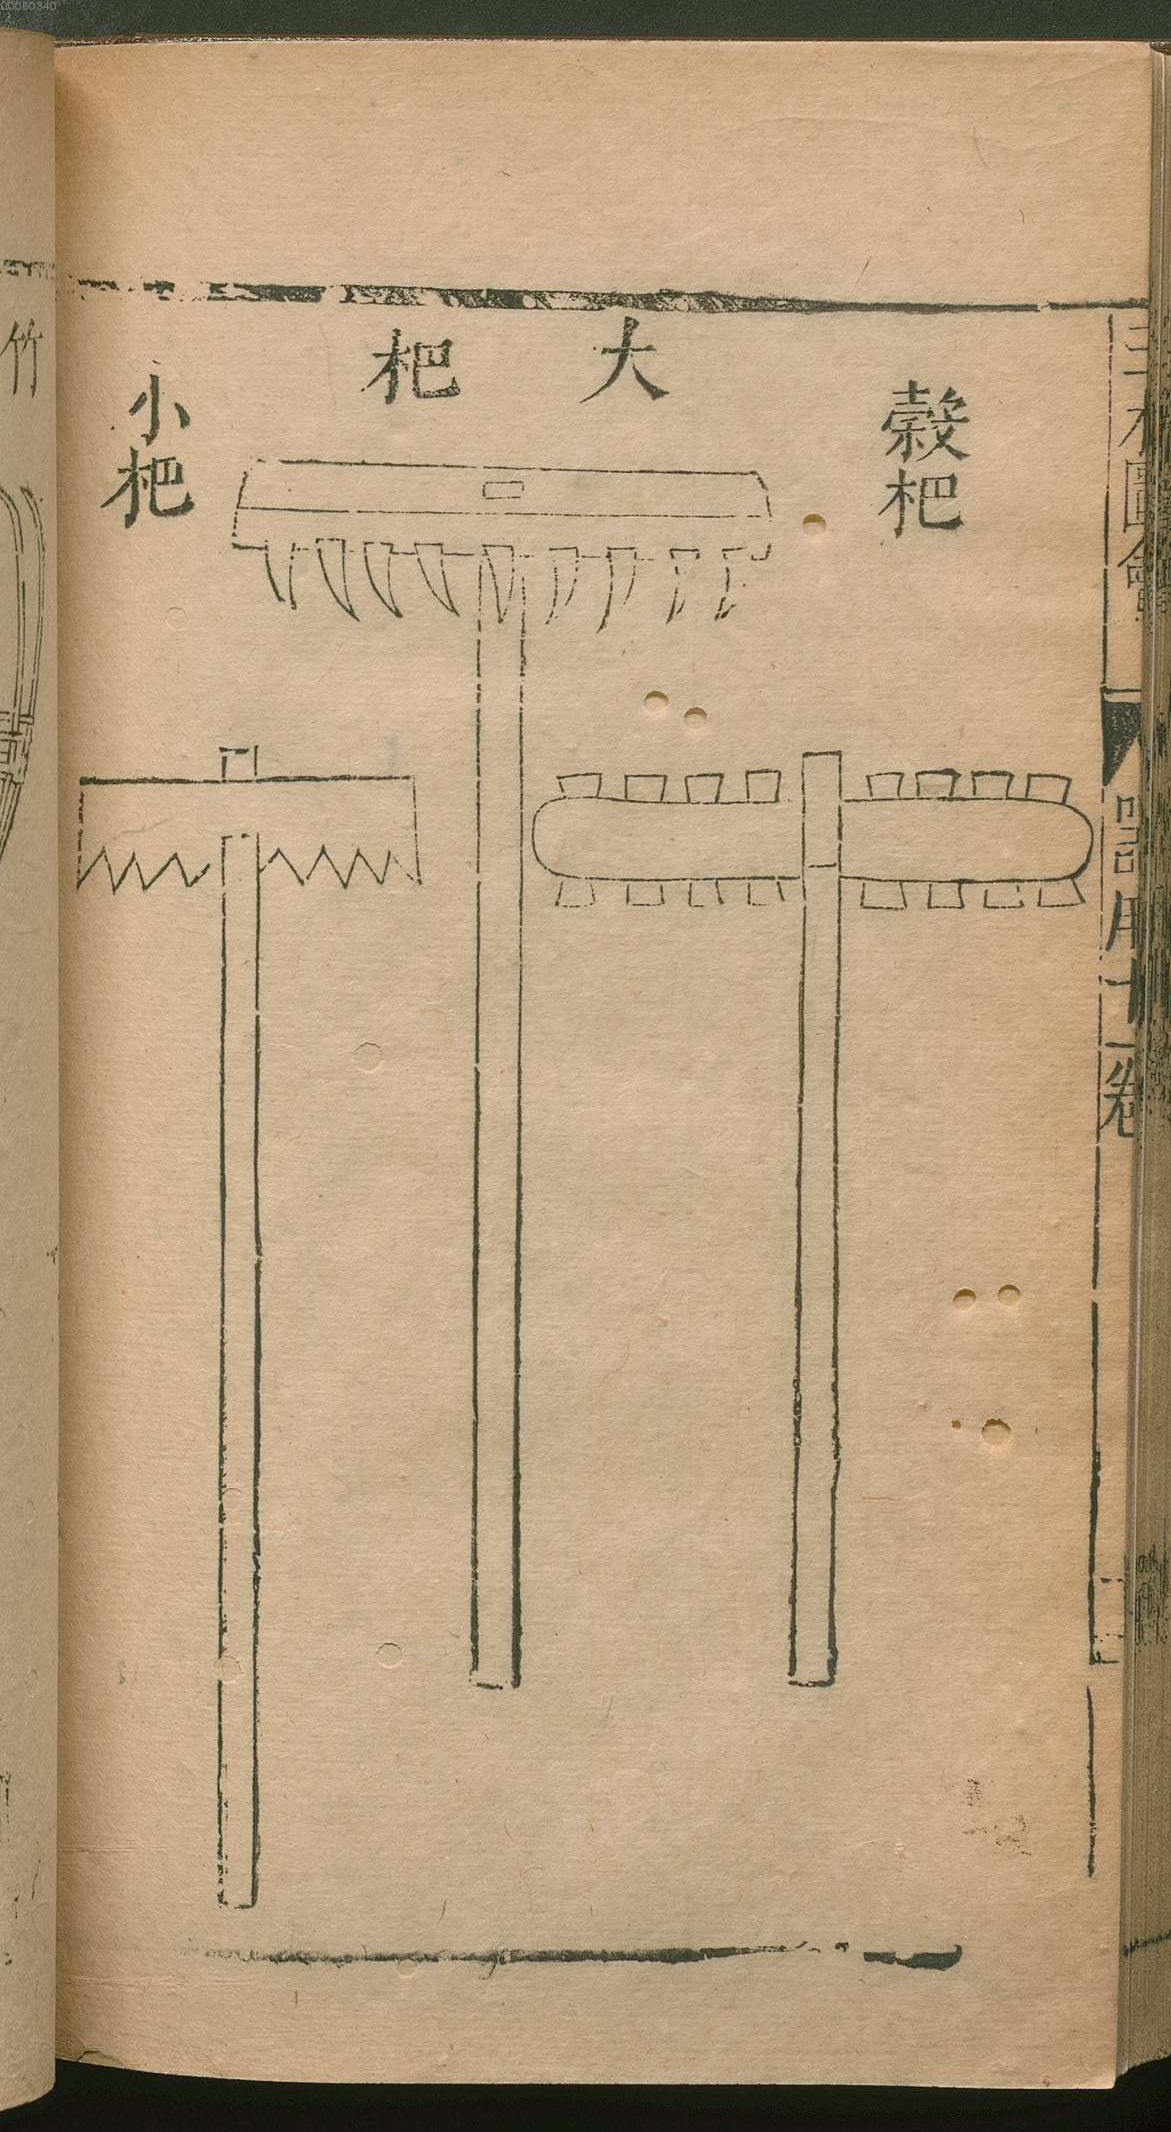 三才圖會
器用十一卷
穀杷
大杷
小杷
竹
00060340